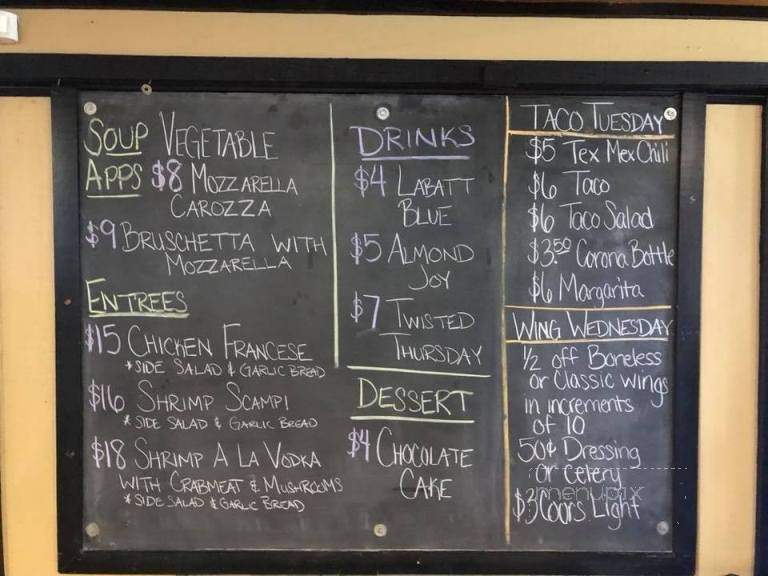 SOUP VEGETABLE
APPS $8 MOZZARELLA
CAROZZA
$9 BRUSCHETTA WITH
MOZZARELLA
ENTREES
$15 CHICKEN FRANCESE
* SIDE SALAD & GARLIC BREAD
$16 SHRIMP SCAMPI
* SIDE SALAD & GARLIC BREAD
$18 SHRIMP A LA VODKA
WITH CRABMEAT & MUSHROOMS
* SIDE SALAD & GARLIC BREAD
DRINKS
$4 LABATT
BLUE
$5 ALMOND
JOY
$7 TWISTED
THURSDAY
DESSERT
$4 CHOCOLATE
CAKE
TACO TUESDAY
$5 Tex Mex Chili
$6 Taco
$6 Taco Salad
$3.50 Corona Bottle
$6 Margarita
WING WEDNESDAY
1/2 off Boneless
or Classic wings
in increments
of 10
50¢ Dressing
or celery
$3 Coors Light
menupix